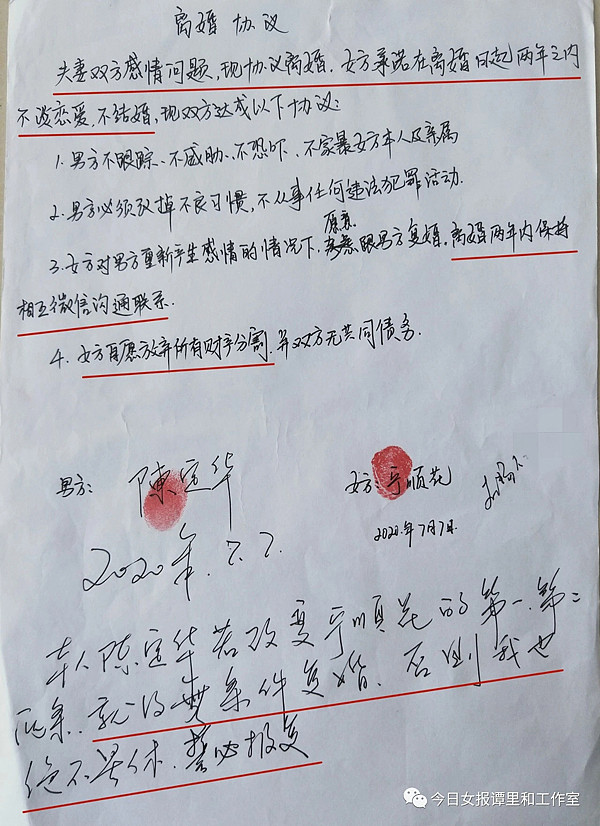 离婚协议
夫妻双方感情问题,现协议离婚.女方承诺在离婚日起两年之内
不谈恋爱,不结婚,现双方达成以下协议:
1.男方不跟踪、不威胁、不恐吓、不家暴女方本人及亲属
2.男方必须改掉不良习惯,不从事任何违法犯罪活动.
3.女方对男方重新产生感情的情况下,愿意跟男方复婚,离婚两年内保持
相互微信沟通联系.
4.女方自愿放弃所有财产分割.并双方无共同债务.
男方: 陳定华
女方:于顺花
2020年7月7日.
2020年.7.7.
本人陈定华若改变于顺花的第一.第二
两条.就得無条件复婚、否则我也
绝不罢休.誓必报复
今日女报谭里和工作室